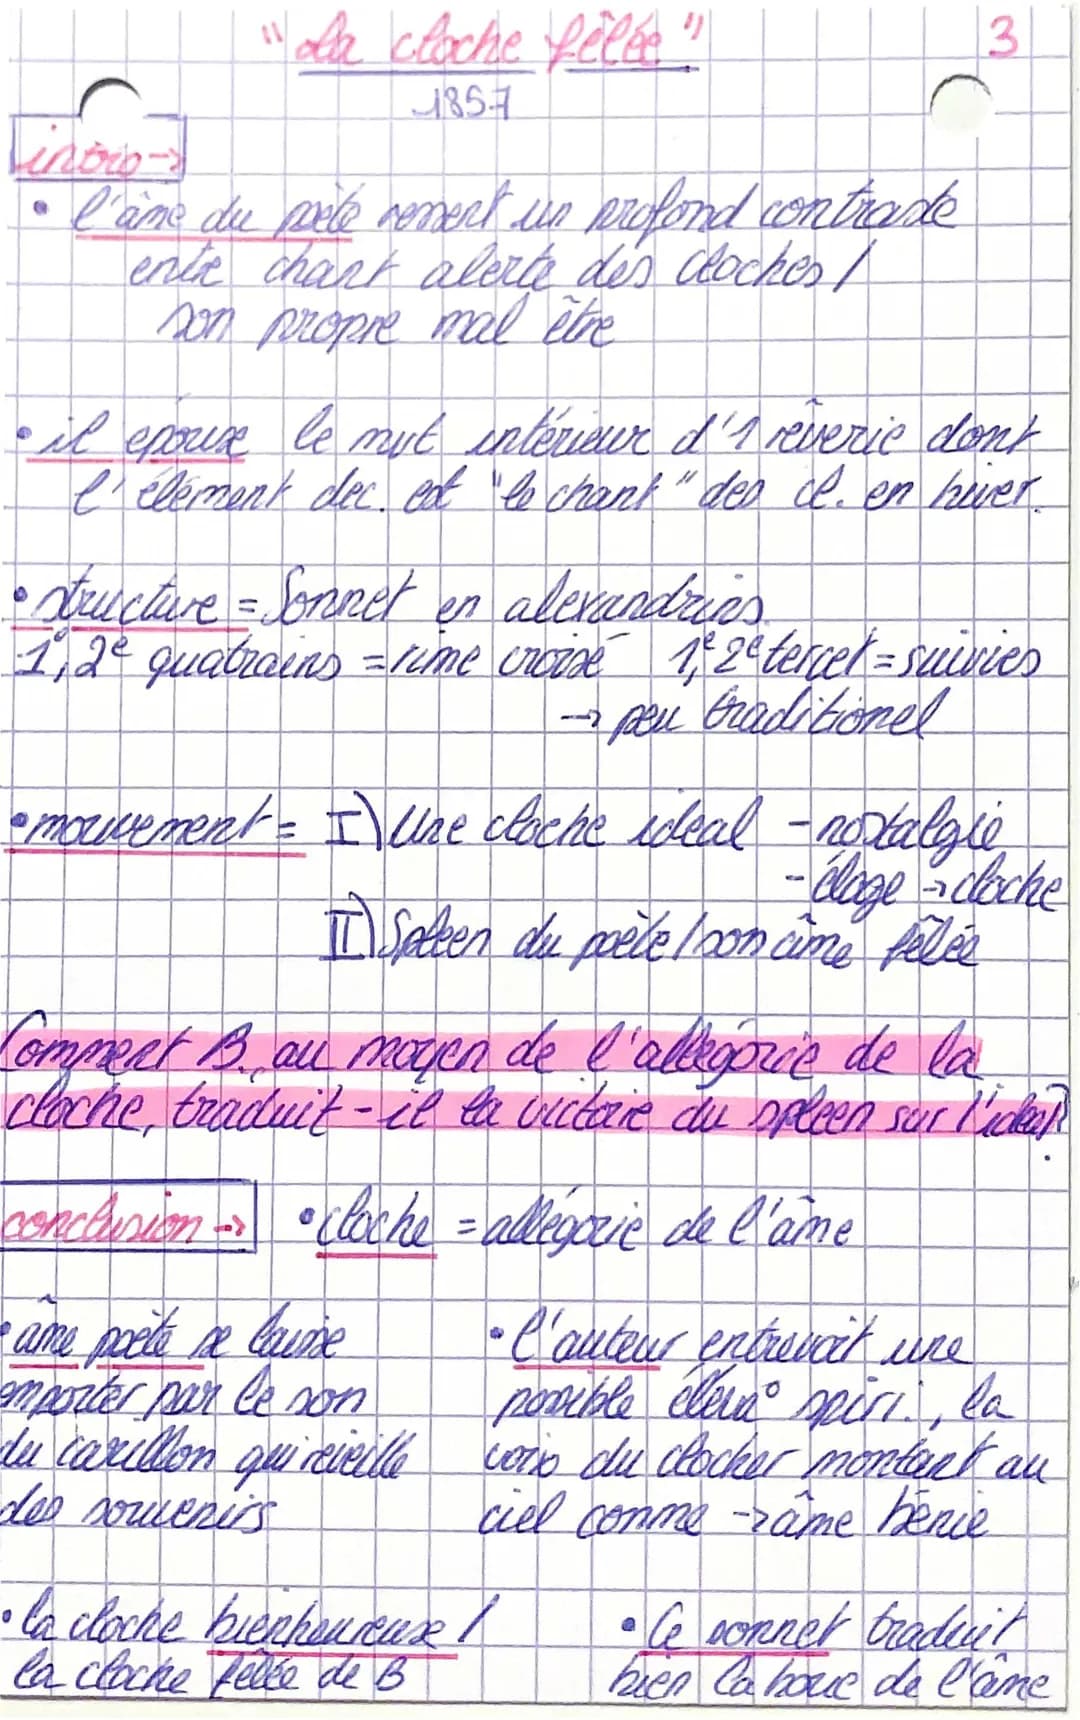 "La cloche fêlée" 3
1857
intro →
• l'âme du poète ressent un profond contraste
entre chant alerte des cloches /
son propre mal être
• il epouse le mvt intérieur d'1 rêverie dont
l'élément dec. est "le chant" des cl. en hiver.
• structure = Sonnet en alexandrins.
1e, 2e quatrains = rime croisé 1e, 2e tercet = suivies
→ peu traditionel
• mouvement = I) Une cloche ideal - nostalgie
- éloge → cloche
II) Spleen du poète / son âme fêlée
Comment B., au moyen de l'allégorie de la
cloche, traduit-il la victoire du spleen sur l'idéal?
conclusion → • cloche = allégorie de l'âme
• âme poète se laisse
emporter par le son
du carillon qui réveille
des souvenirs
• l'auteur entrevoit une
possible éléva° spiri., la
voix du clocher montant au
ciel comme → âme bénie
• la cloche bienheureuse /
la cloche fêlée de B
• Ce sonnet traduit
bien la boue de l'âme